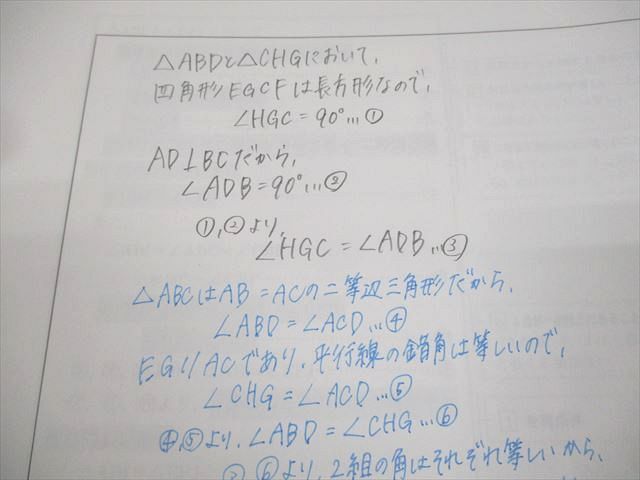 △ABDと△CHGにおいて,
四角形EGCFは長方形なので,
∠HGC=90°…①
AD⊥BCだから,
∠ADB=90°…②
①,②より,
∠HGC=∠ADB…③
△ABCはAB=ACの二等辺三角形だから,
∠ABD=∠ACD…④
EG//ACであり,平行線の錯角は等しいので,
∠CHG=∠ACD…⑤
④,⑤より,∠ABD=∠CHG…⑥
③,⑥より,2組の角はそれぞれ等しいから,